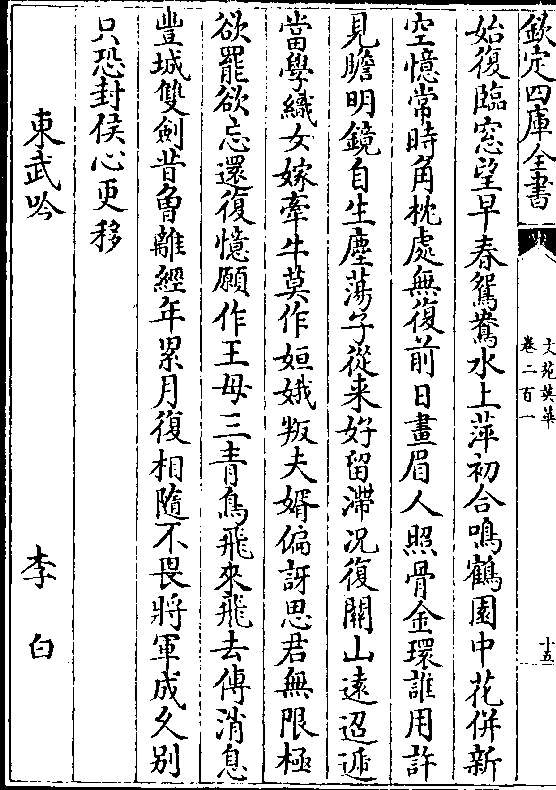 欽定四庫全書
文苑英華
卷二百一
十五
始復臨窓望早春鴛鴦水上萍初合鳴鶴園中花併新
空憶常時角枕處無復前日畫眉人照骨金環誰用許
見瞻明鏡自生塵蕩子從来好留滯况復關山遠迢遞
當學織女嫁牽牛莫作姮娥叛夫婿偏訝思君無限極
欲罷欲忘還復憶願作王母三青鳥飛來飛去傳消息
豐城雙劍昔曾離經年累月復相隨不畏將軍成久别
只恐封侯心更移
東武吟
李白